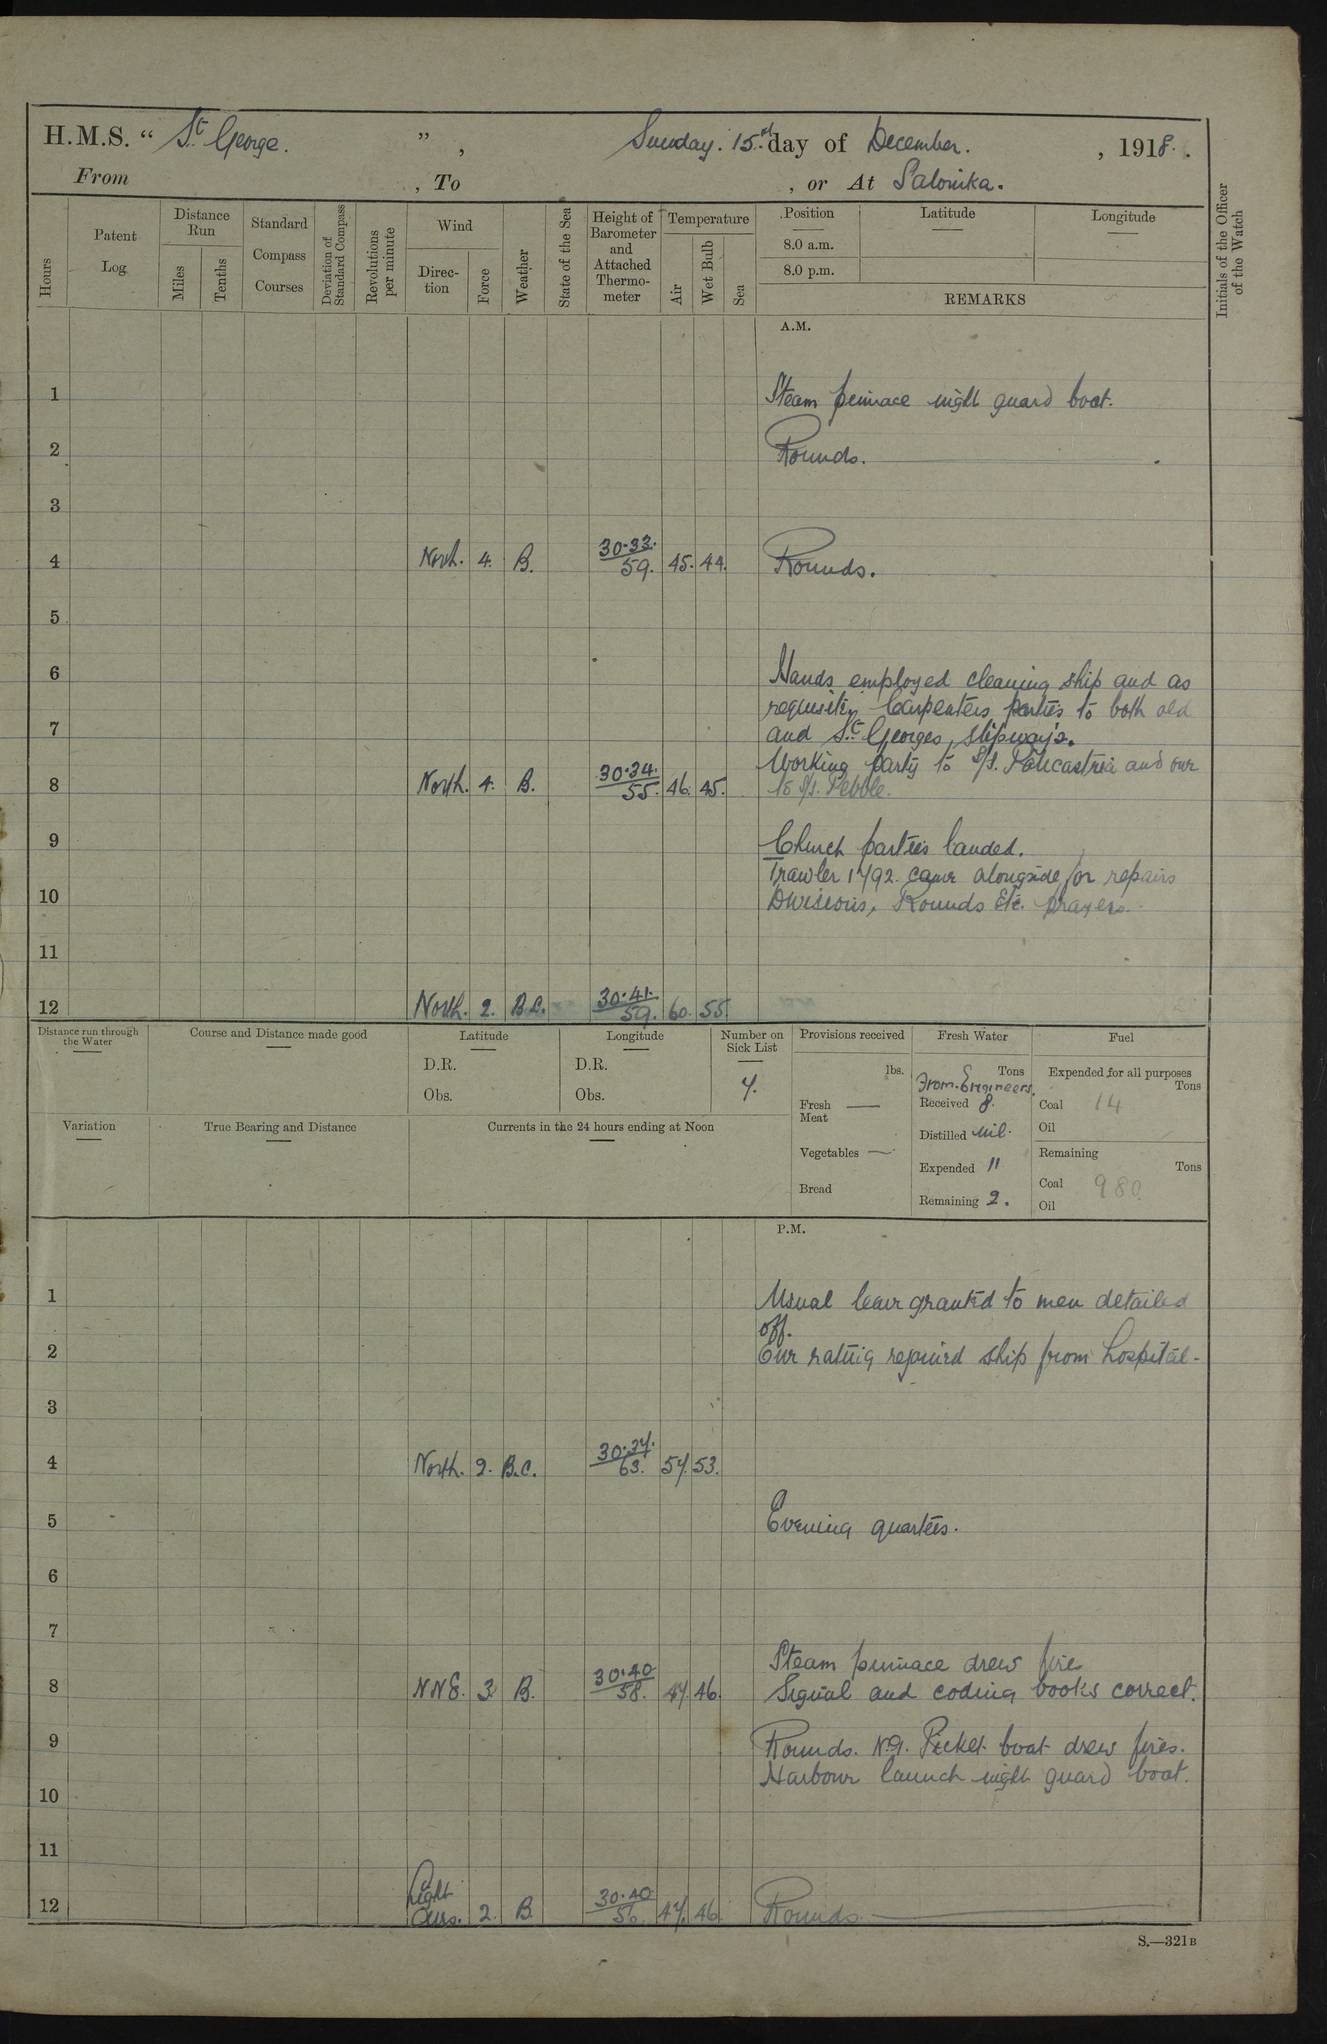 H.M.S. “ St George. ” , Sunday. 15.rd day of December. , 1918. .
From , To , or At Salonika.
Hours
Patent Log
Distance Run
Miles
Tenths
Standard Compass Courses
Deviation of Standard Compass
Revolutions per minute
Wind
Direc- tion
Force
Weather
State of the Sea
Height of Barometer and Attached Thermo- meter
Temperature
Air
Wet Bulb
Sea
Position
8.0 a.m.
8.0 p.m.
Latitude
Longitude
REMARKS
Initials of the Officer of the Watch
A.M.
1 Steam pinnace night guard boat.
2 Rounds.
3
4 North. 4. B. 30.33. 59. 45. 44. Rounds.
5
6 Hands employed cleaning ship and as
requisite, Carpenters parties to both old
7 and St Georges, slipways.
Working party to S/S. and one
8 North. 4. B. 30.34. 55. 46. 45. to S/S. Pebble.
9 Church parties landed.
Trawler 1792. came alongside for repairs
10 Divisions, Rounds Etc. prayers.
11
12 North. 2. B.C. 30.41. 59. 60. 55.
Distance run through the Water
Course and Distance made good
Latitude
D.R.
Obs.
Longitude
D.R.
Obs.
Number on Sick List
7.
Provisions received
lbs.
Fresh Meat —
Vegetables —
Bread
Fresh Water
Tons
From Engineers.
Received 8.
Distilled Nil.
Expended 11
Remaining 2.
Fuel
Expended for all purposes
Tons
Coal 14
Oil
Remaining
Tons
Coal 980
Oil
Variation
True Bearing and Distance
Currents in the 24 hours ending at Noon
P.M.
1 Usual leave granted to men detailed
off.
2 One rating rejoined ship from hospital.
3
4 North. 2. B.C. 30.37. 63. 57. 53.
5 Evening quarters.
6
7
Steam pinnace drew fires
8 N N E. 3 B. 30.40 58. 47. 46. Signal and coding books correct.
9 Rounds. Picket boat drew fires.
Harbour launch night guard boat.
10
11
12 Light Airs. 2. B. 30.40 56. 47. 46. Rounds.
S.—321B